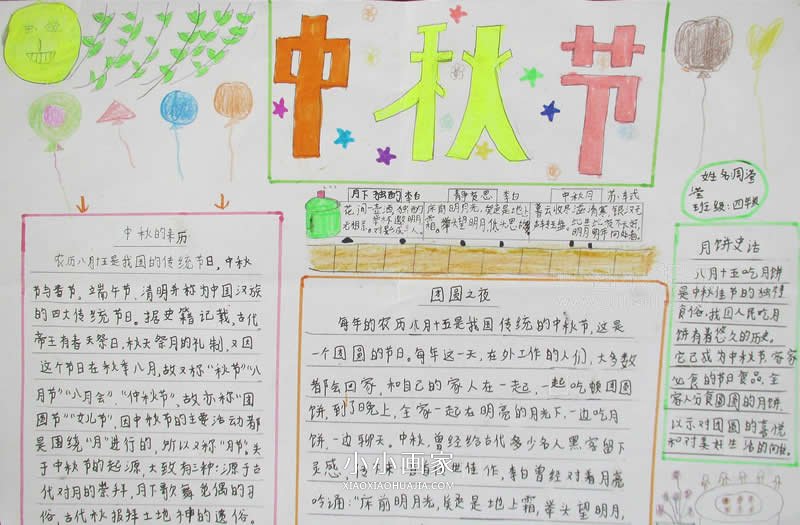 中秋节
月下独酌 李白
静夜思 李白
中秋月 苏轼
花间一壶酒,独酌
无相亲。举杯邀明月,
对影成三人。
床前明月光,疑是地上
霜。举头望明月,低头思故
暮云收尽溢清寒,银汉无
姓名:周
班级:四年级
中秋的来历
农历八月十五是我国的传统节日,中秋
节与春节、端午节、清明并称为中国汉族
的四大传统节日。据史籍记载,古代
帝王有春天祭日,秋天祭月的礼制,又因
这个节日在秋季八月,故又称“秋节”“八
月节”“八月会”、“仲秋节”、故亦称“团
圆节”“女儿节”,因中秋节的主要活动都
是围绕“月”进行的,所以又称“月节”。关
于中秋节的起源,大致有三种:源于古
代对月的崇拜,月下歌舞觅偶的习
俗,古代秋报拜土地神的遗俗。
团圆之夜
每年的农历八月十五是我国传统的中秋节,这是
一个团圆的节日。每年这一天,在外工作的人们,大多数
都会回家,和自己的家人在一起,一起吃顿团圆
饼,到了晚上,全家一起在明亮的月光下,一边吃月
饼,一边聊天。中秋,曾经给古代多少名人墨客留下
灵感,佳作,李白曾经对着月亮
吟诵:“床前明月光,疑是地上霜,举头望明月,
月饼史话
八月十五吃月饼
是中秋佳节的独特
食俗,我国人民吃月
饼有着悠久的历史。
它已成为中秋节家家
必食的节日食品,全
家人分食圆圆的月饼,
以示对团圆的喜悦
和对美好生活的向往。
小小画家
XIAOXIAOHUAJIA.COM